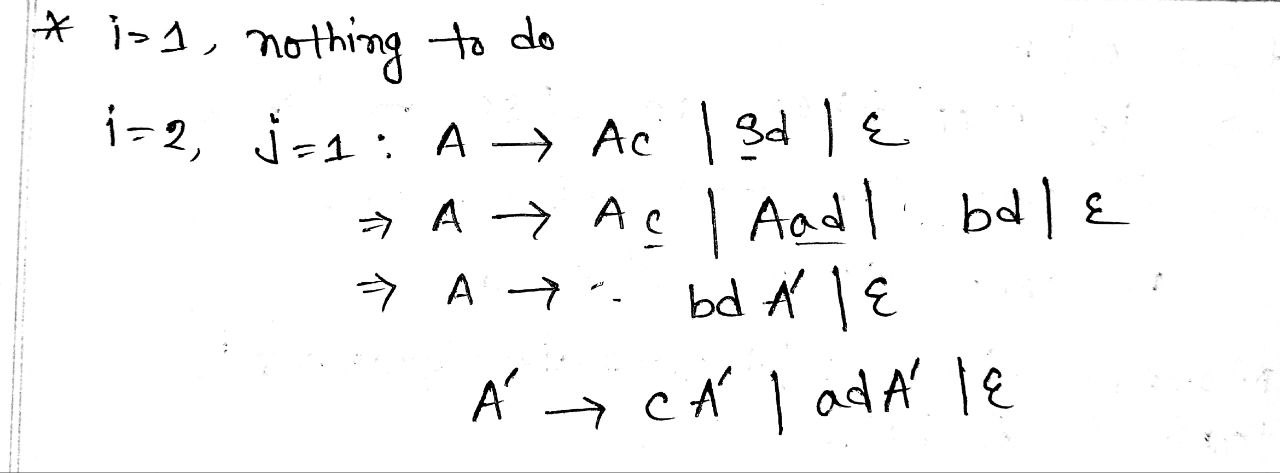 * i=1, nothing to do
i=2, j=1: A → Ac | Sd | ε
⇒ A → Ac | Aad | bd | ε
⇒ A → bd A' | ε
A' → cA' | adA' | ε